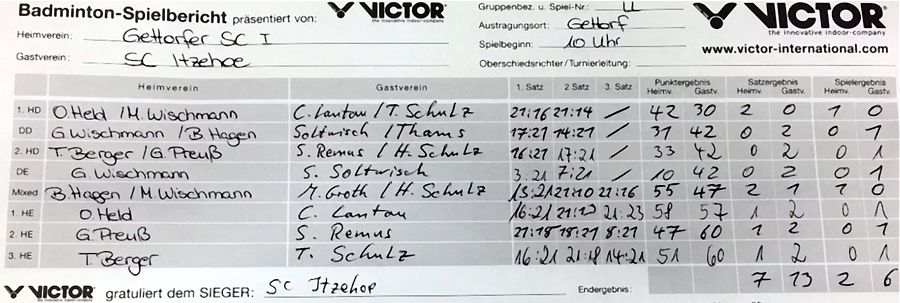 Badminton-Spielbericht präsentiert von: VICTOR the innovative indoor-company
Gruppenbez. u. Spiel-Nr.: U
VICTOR
the innovative indoor-company
Heimverein: Gettorfer SC I
Austragungsort: Gettorf
Gastverein: SC Itzehoe
Spielbeginn: 10 Uhr
www.victor-international.com
Oberschiedsrichter/Turnierleitung:
Heimverein Gastverein 1. Satz 2. Satz 3. Satz Punktergebnis Heimv. Gastv. Satzergebnis Heimv. Gastv. Spielergebnis Heimv. Gastv.
1. HD O.Held / M.Wischmann C. Lantau / T. Schulz 21:16 21:14 / 42 30 2 0 1 0
DD G.Wischmann / B.Hagen Soltwisch / Thams 17:21 14:21 / 31 42 0 2 0 1
2. HD T. Berger / G. Preuß S. Remus / H. Schulz 16:21 17:21 / 33 42 0 2 0 1
DE G. Wischmann S. Soltwisch 3:21 7:21 / 10 42 0 2 0 1
Mixed B.Hagen / M.Wischmann M. Groth / H. Schulz 13:21 21:10 21:16 55 47 2 1 1 0
1. HE O.Held C. Lantau 16:21 21:13 21:23 58 57 1 2 0 1
2. HE G.Preuß S. Remus 21:18 18:21 8:21 47 60 1 2 0 1
3. HE T. Berger T. Schulz 16:21 21:18 14:21 51 60 1 2 0 1
VICTOR the innovative indoor-company gratuliert dem SIEGER: SC Itzehoe Endergebnis: 7 13 2 6